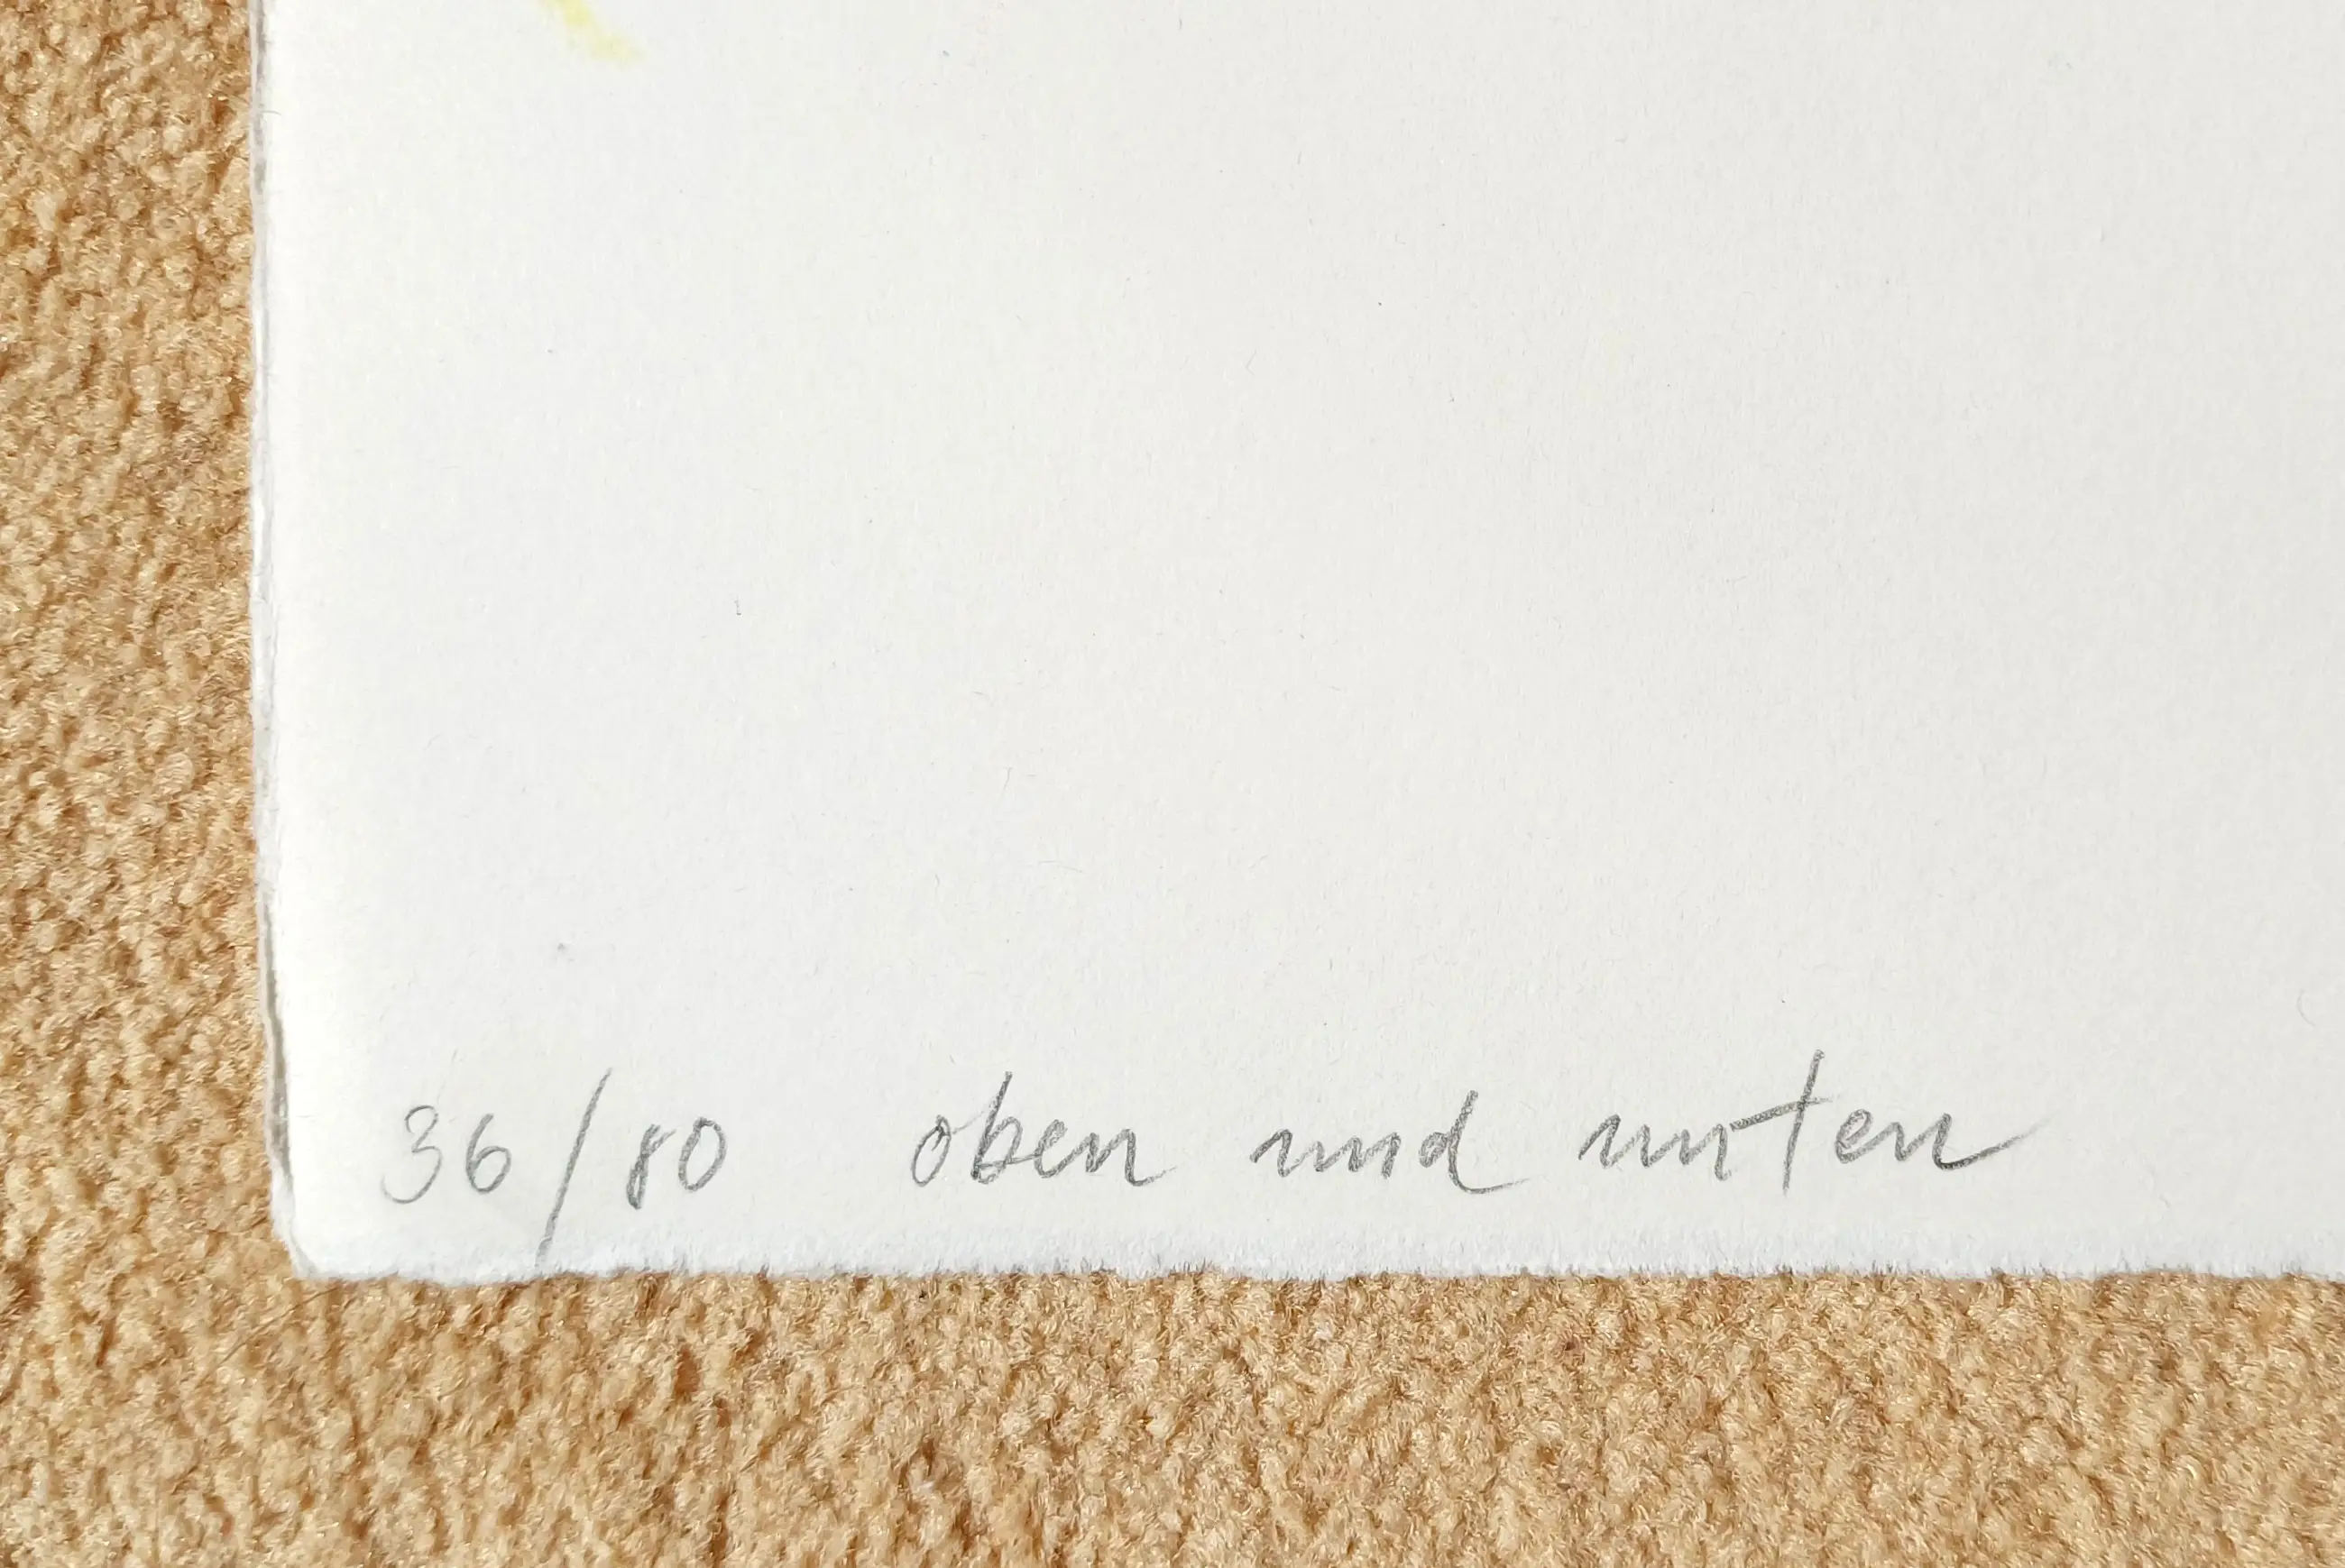 36/80 oben und unten